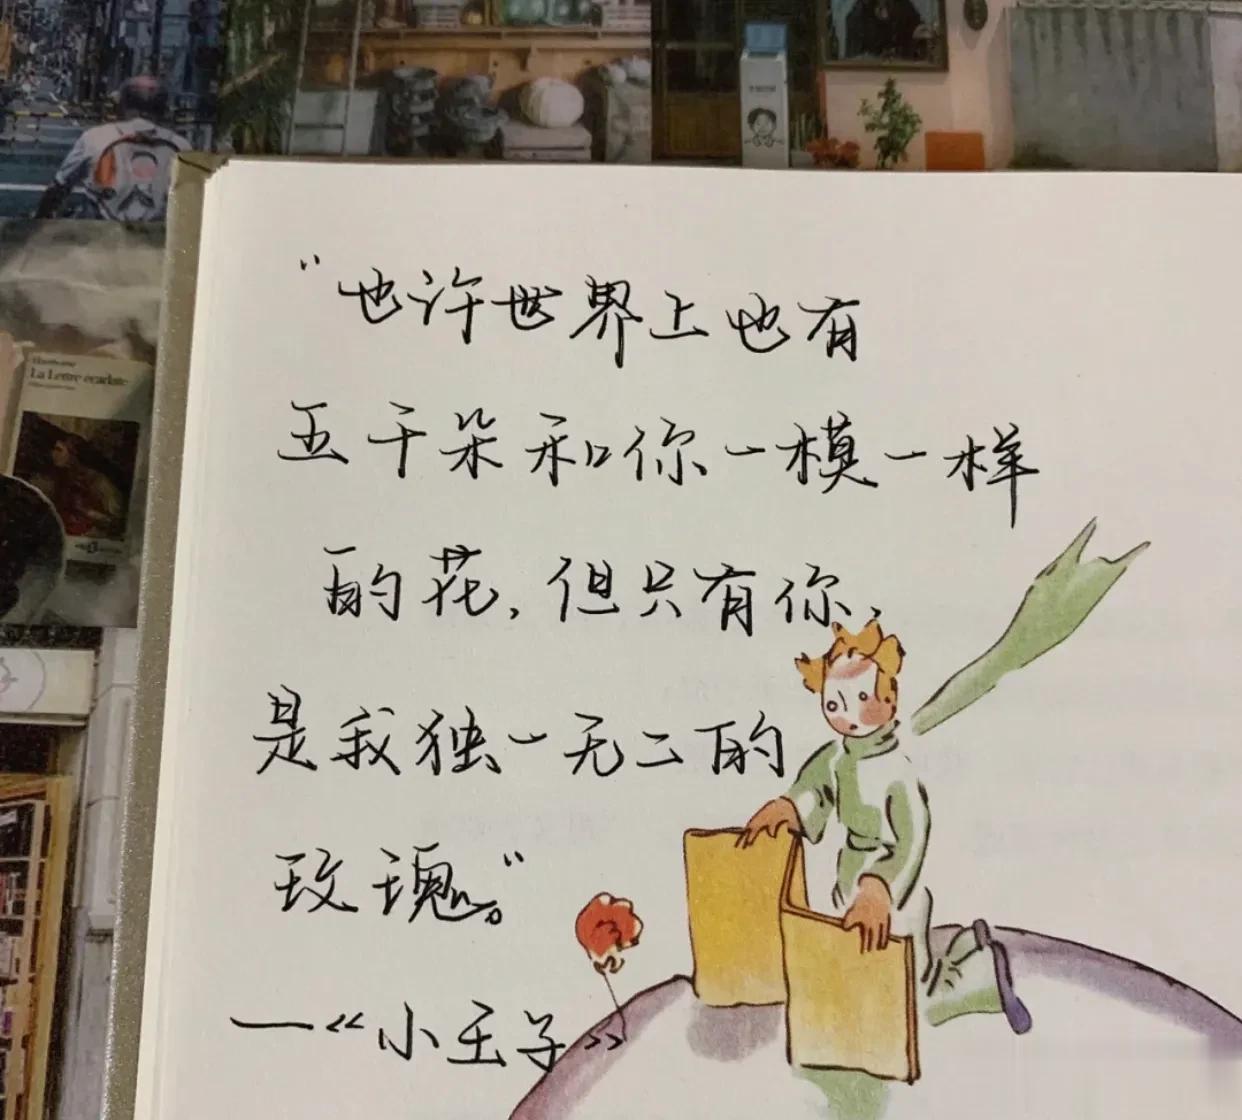 “也许世界上也有
五千朵和你一模一样
的花，但只有你，
是我独一无二的
玫瑰。”
—《小王子》
La Lettre écarlate